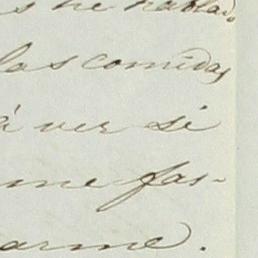 s he hablado
las comidas
á ver si
me fas-
arme.